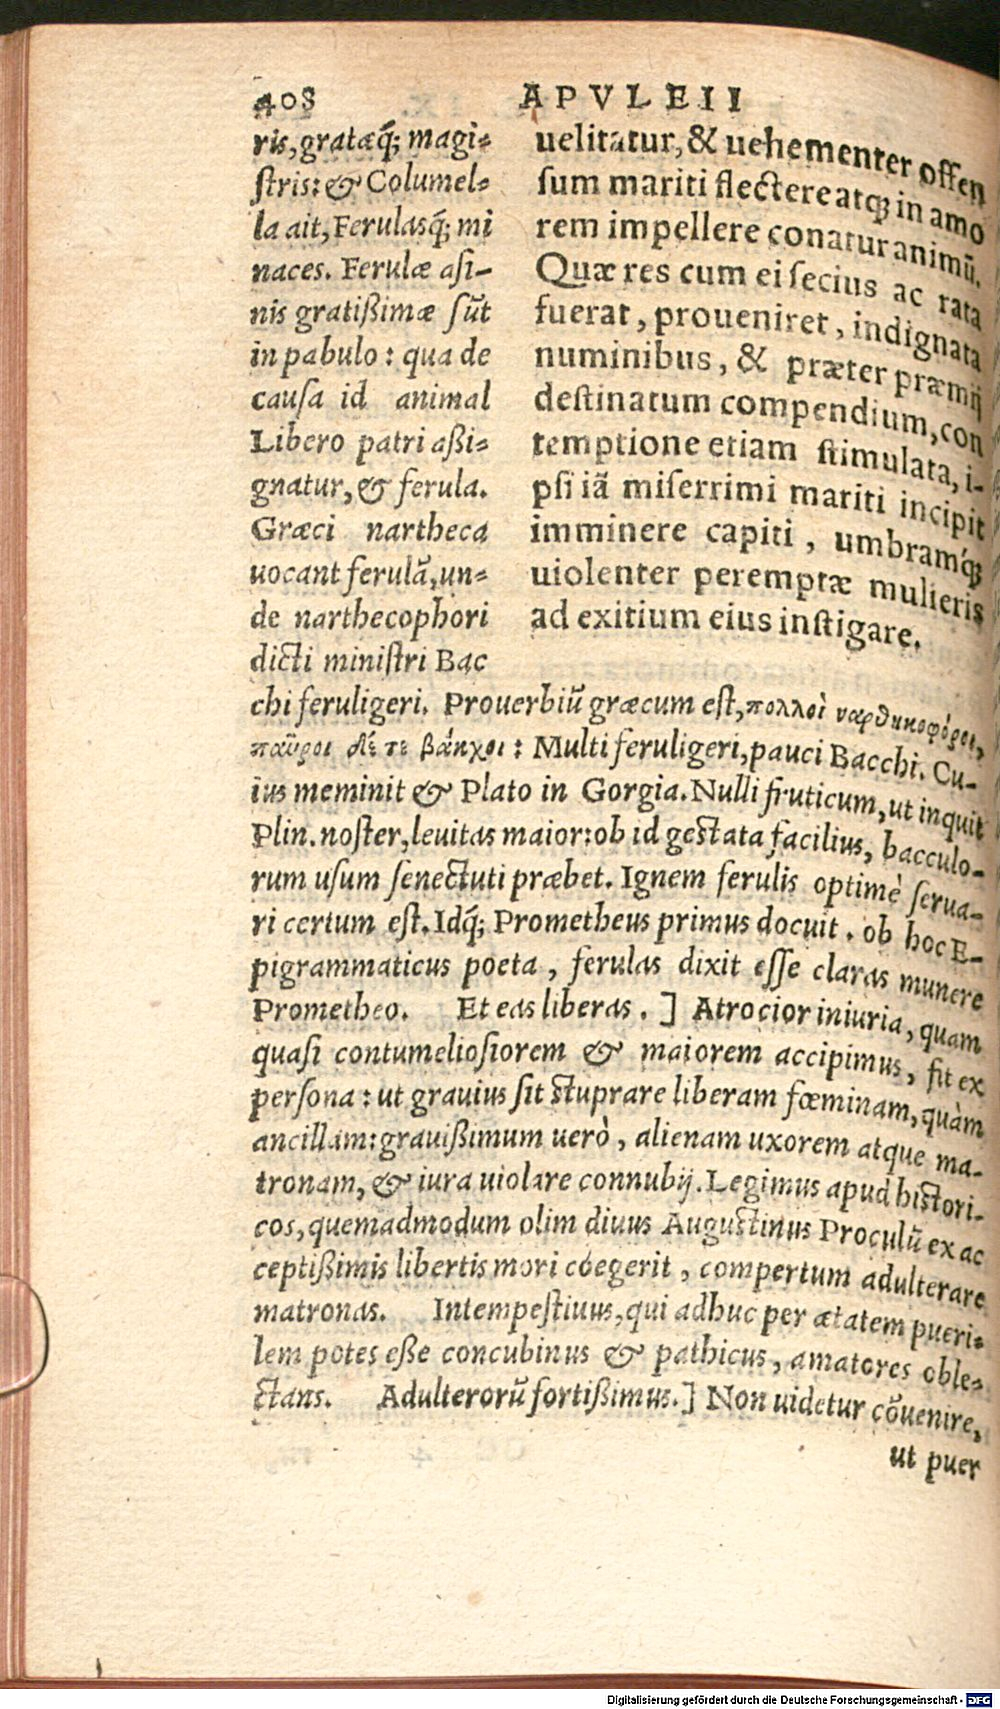 408
APVLEII
uelitatur, & uehementer offen
sum mariti flectere atq; in amo
rem impellere conatur animũ.
Quæ res cum ei secius ac rata
fuerat, proueniret, indignata
numinibus, & præter præmij
destinatum compendium, con
temptione etiam stimulata, i-
psi iã miserrimi mariti incipit
imminere capiti, umbramq́;
uiolenter peremptæ mulieris
ad exitium eius instigare.
ris, gratæq́; magi-
stris: & Columel-
la ait, Ferulasq́; mi
naces. Ferulæ asi-
nis gratißimæ sũt
in pabulo: qua de
causa id animal
Libero patri aßi-
gnatur, & ferula.
Græci nartheca
uocant ferulã, un-
de narthecophori
dicti ministri Bac
chi feruligeri. Prouerbiũ græcum est, πολλοὶ ναρθηκοφόροι,
παῦροι δέ τε βάκχοι: Multi feruligeri, pauci Bacchi. Cu-
ius meminit & Plato in Gorgia. Nulli fruticum, ut inquit
Plin. noster, leuitas maior: ob id gestata facilius, bacculo-
rum usum senectuti præbet. Ignem ferulis optimè serua-
ri certum est. Idq́; Prometheus primus docuit. ob hoc E-
pigrammaticus poeta, ferulas dixit esse claras munere
Prometheo. Et eas liberas.] Atrocior iniuria, quam
quasi contumeliosiorem & maiorem accipimus, fit ex
persona: ut grauius sit stuprare liberam fœminam, quàm
ancillam: grauißimum uerò, alienam uxorem atque ma-
tronam, & iura uiolare connubij. Legimus apud histori-
cos, quemadmodum olim diuus Augustinus Proculũ ex ac
ceptißimis libertis mori coegerit, compertum adulterare
matronas. Intempestiuus, qui adhuc per ætatem pueri-
lem potes eße concubinus & pathicus, amatores oble-
ctans. Adulterorũ fortißimus.] Non uidetur cõuenire,
ut puer
Digitalisierung gefördert durch die Deutsche Forschungsgemeinschaft - DFG